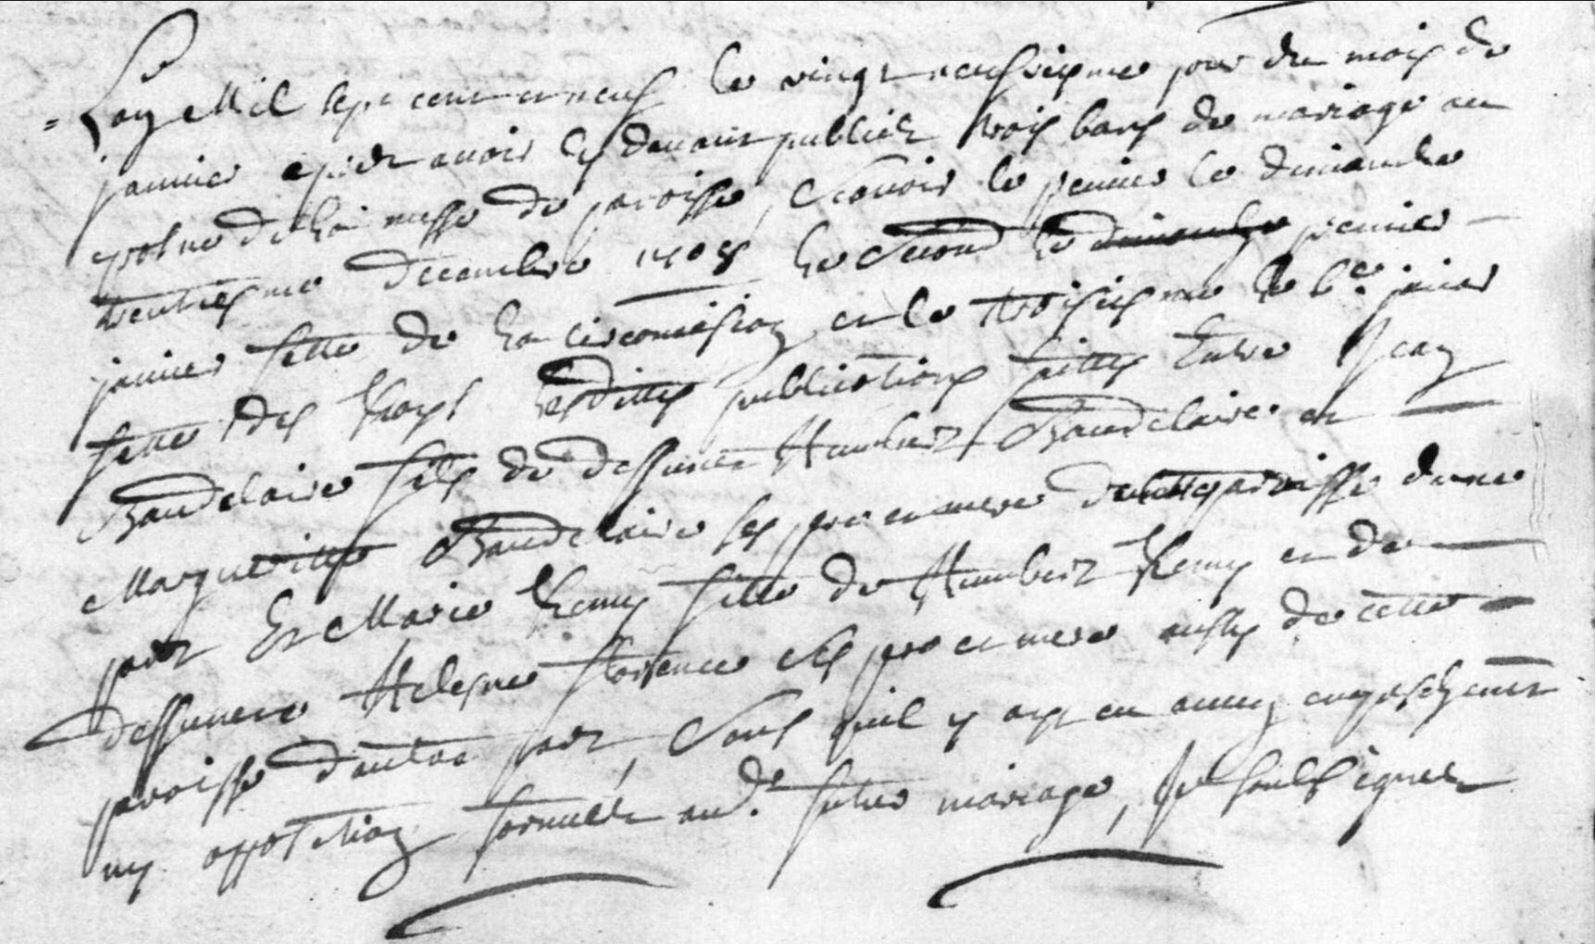 L'an Mil sept cent et neuf le vingt neufviesme jour du mois de
janvier apres avoir cy devant publiez trois bans de mariage au
prosne de la messe de paroisse, Scavoir le premier le dimanche
trentiesme decembre 1708 le Second le dimanche premier
janvier feste de la circoncision et le troisiesme le 6e janvier
feste des Roys lesdittes publications faittes Entre Jean
Baudelaire fils de deffunct Humbert Baudelaire et
Margueritte Baudelaire ses pere et mere de cette paroisse dune
part Et Marie Remy fille de Humbert Remy et de
deffuncte Helesne Florence ses pere et mere aussy de cette
paroisse d'autre part, Sans quil y ayt eu aucun empeschement
ny opposition formée aud.t futur mariage, Je soubsigné